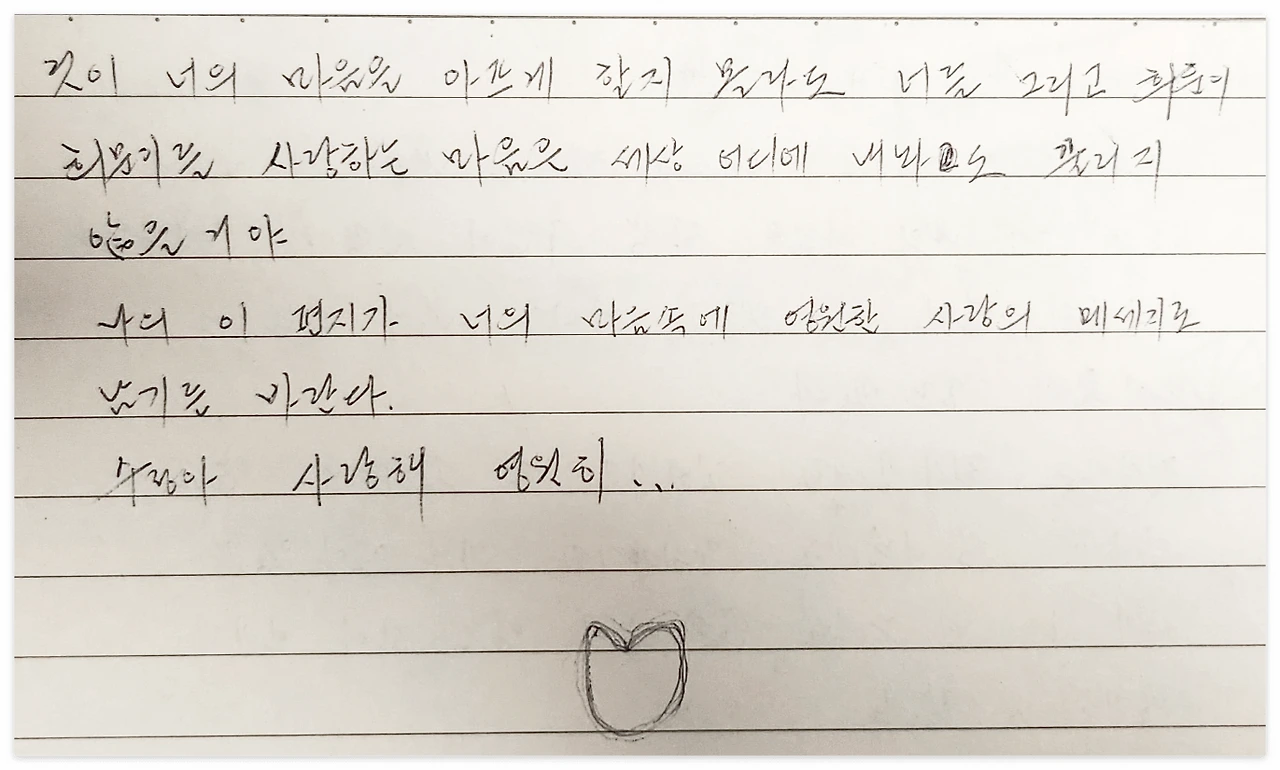 것이 너의 마음을 아프게 할지 몰라도 너를 그리고
사랑하는 마음은 세상 어디에 내놔도 꿀리지
않을 거야
나의 이 편지가 너의 마음속에 영원한 사랑의 메세지로
남기를 바란다.
사랑해 영원히...